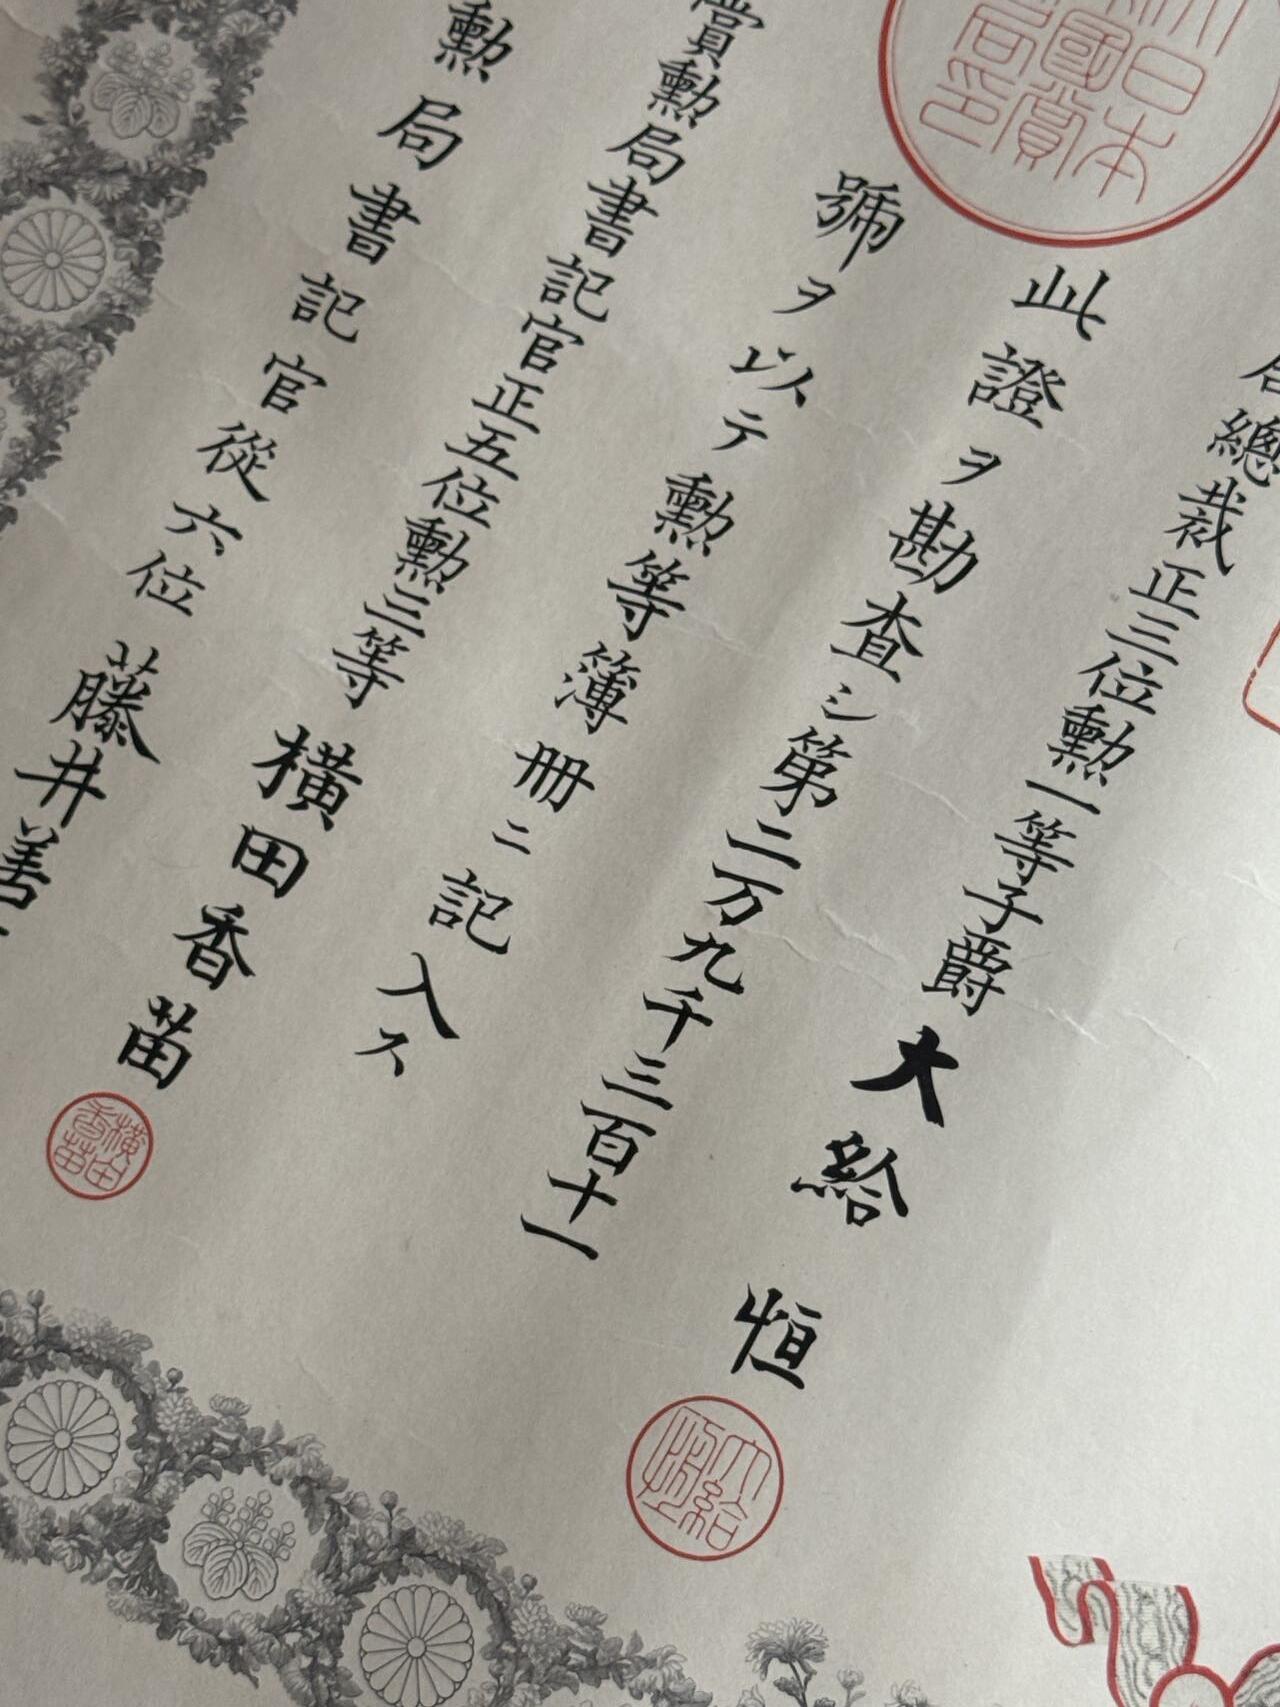 局總裁正三位勲一等子爵大給恒
此證ヲ勘査シ第二万九千三百十一
號ヲ以テ勲等簿冊ニ記入ス
賞勲局書記官正五位勲三等横田香苗
勲局書記官從六位藤井善
日本
國賞
局印
大給
横田
香苗